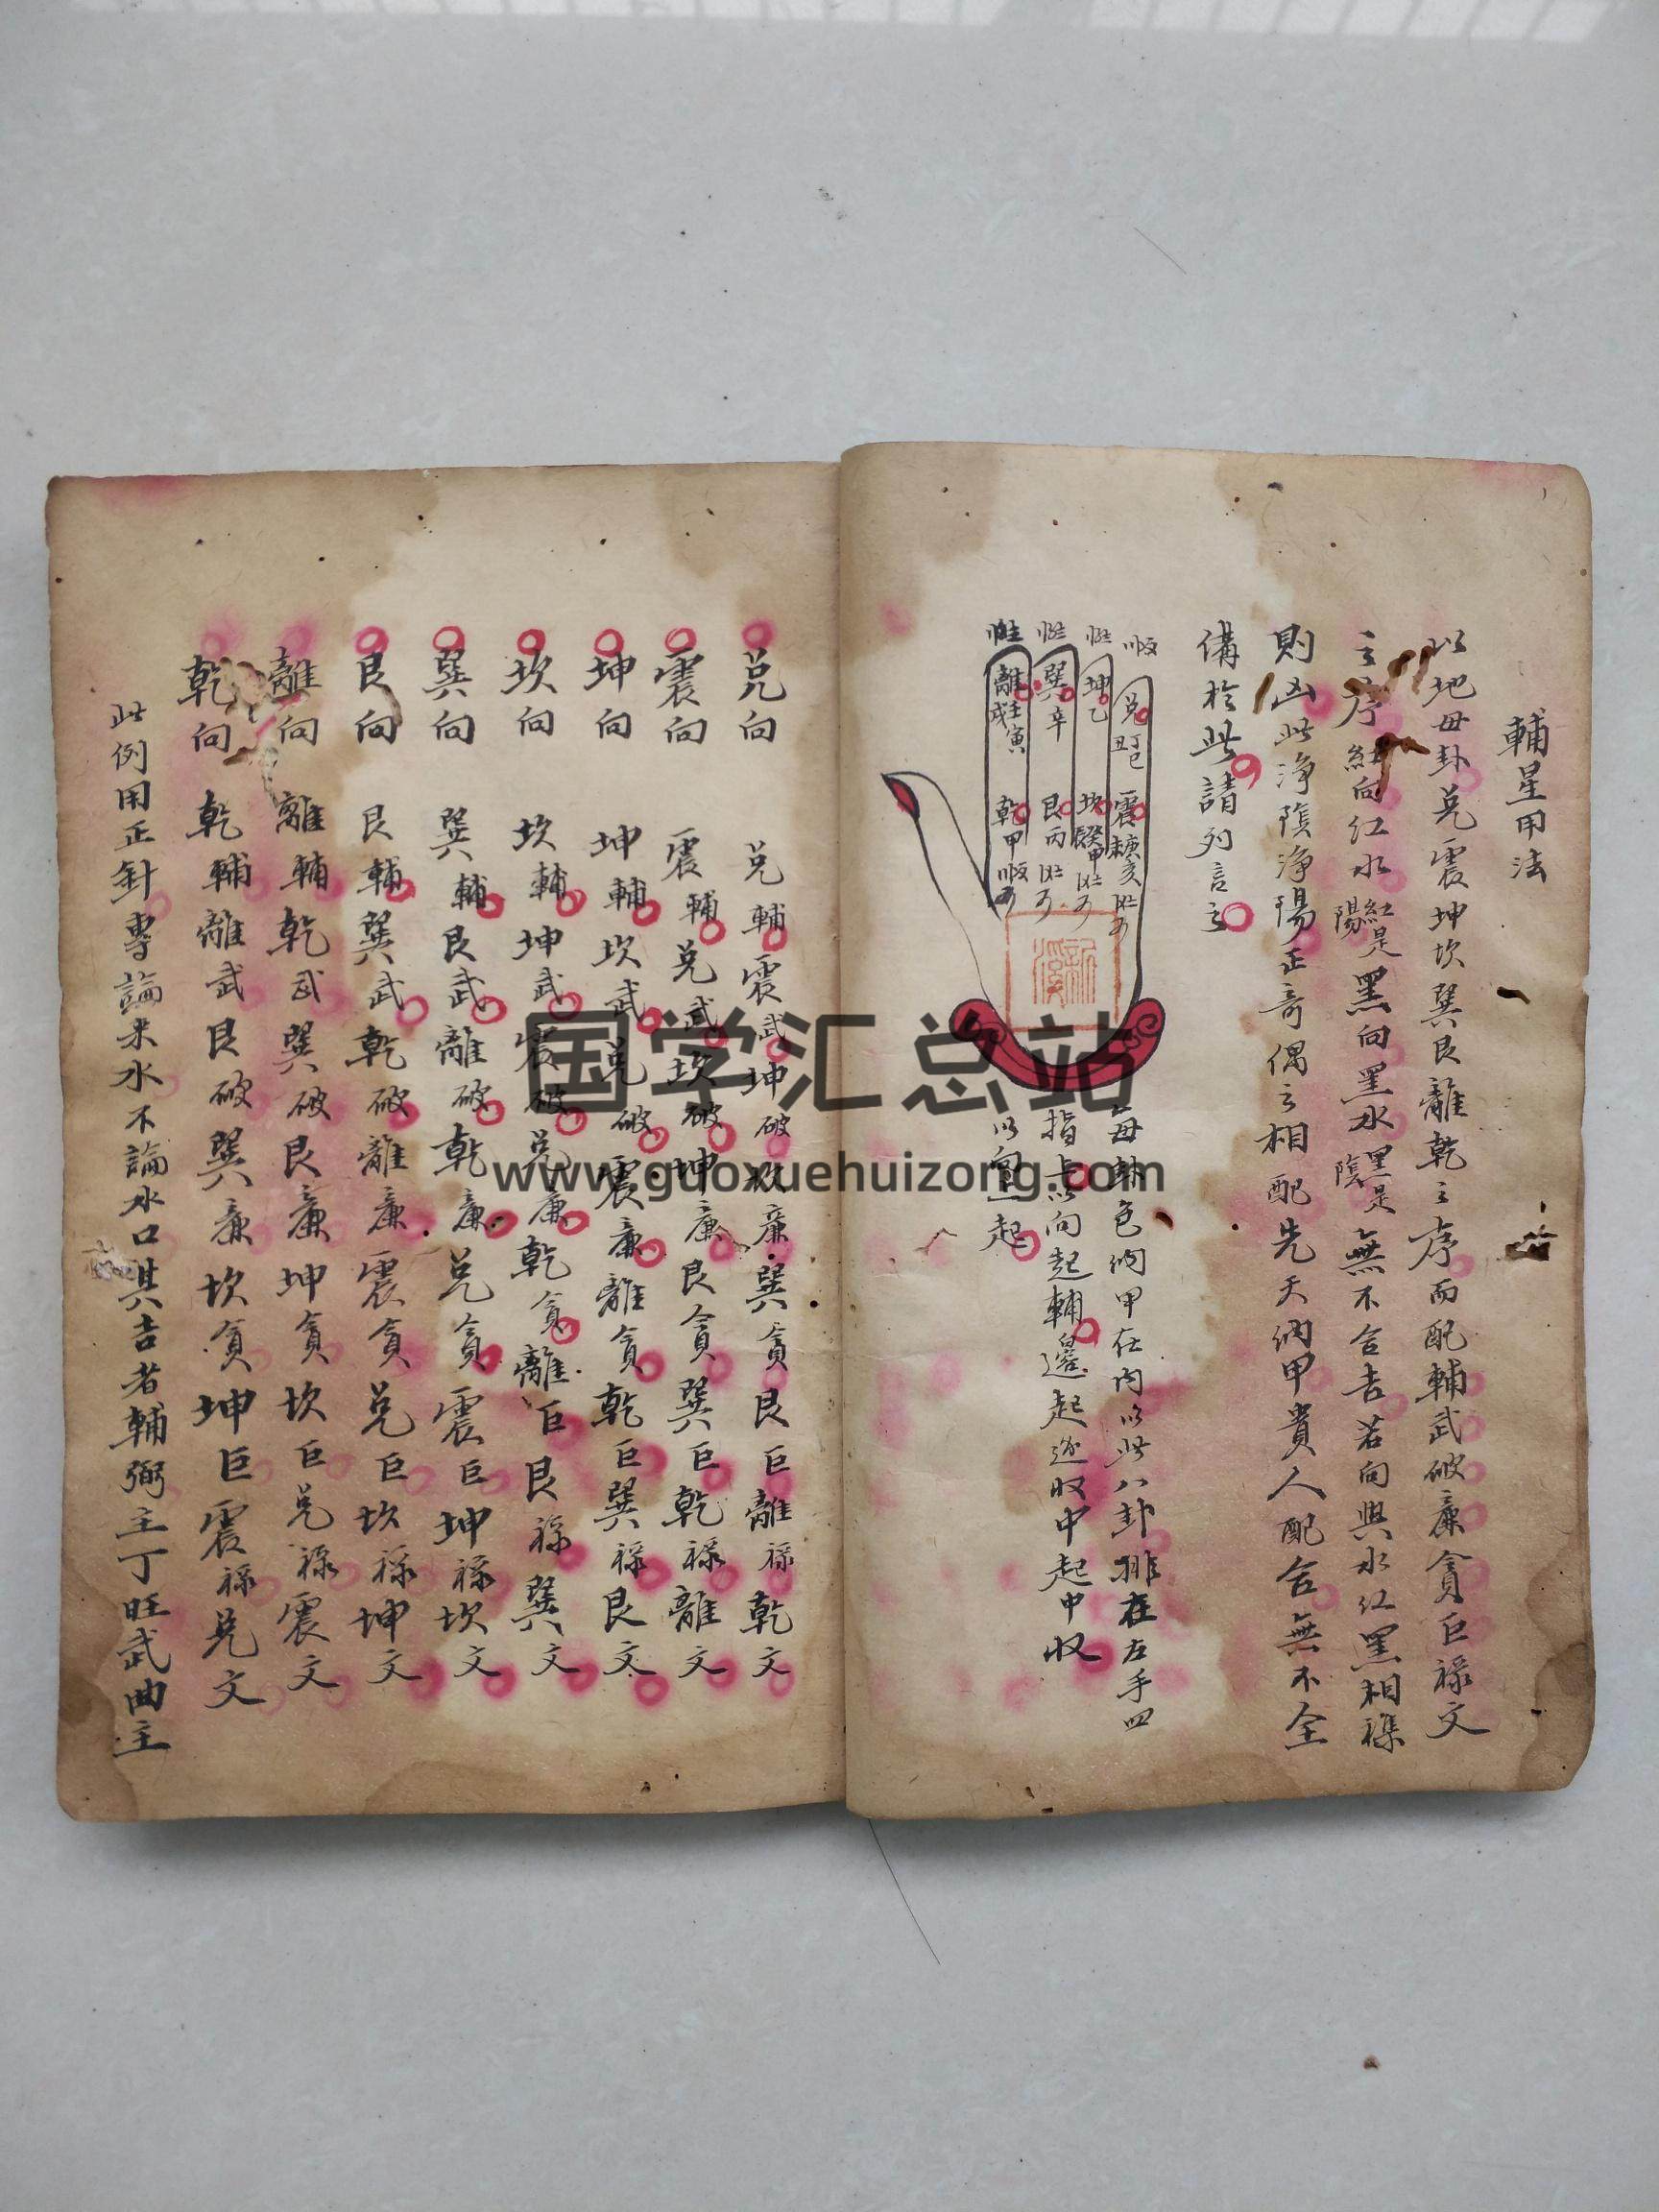 輔星用法
以地母卦兌震坤坎巽艮離乾之序而配輔武破廉貪巨祿文
之序紅向紅水紅是陽黑向黑水黑是陰無不合吉若向與水紅黑相襍
則凶此淨陰淨陽正奇偶之相配先天納甲貴人配合無不全
備於此請列言之
順
兌丁巳丑 震庚亥未
坤乙 坎癸申辰
巽辛 艮丙
離壬寅戌 乾甲
每卦色納甲在內以此八卦排在左手四
指上以向起輔邊起逆收中起中收
以向上起
兌向 兌輔震武坤破坎廉巽貪艮巨離祿乾文
震向 震輔兌武坎破坤廉艮貪巽巨乾祿離文
坤向 坤輔坎武兌破震廉離貪乾巨巽祿艮文
坎向 坎輔坤武震破兌廉乾貪離巨艮祿巽文
巽向 巽輔艮武離破乾廉兌貪震巨坤祿坎文
艮向 艮輔巽武乾破離廉震貪兌巨坎祿坤文
離向 離輔乾武巽破艮廉坤貪坎巨兌祿震文
乾向 乾輔離武艮破巽廉坎貪坤巨震祿兌文
此例用正針專論来水不論水口其吉者輔弼主丁旺武曲主
国学汇总站
www.guoxuehuizong.com